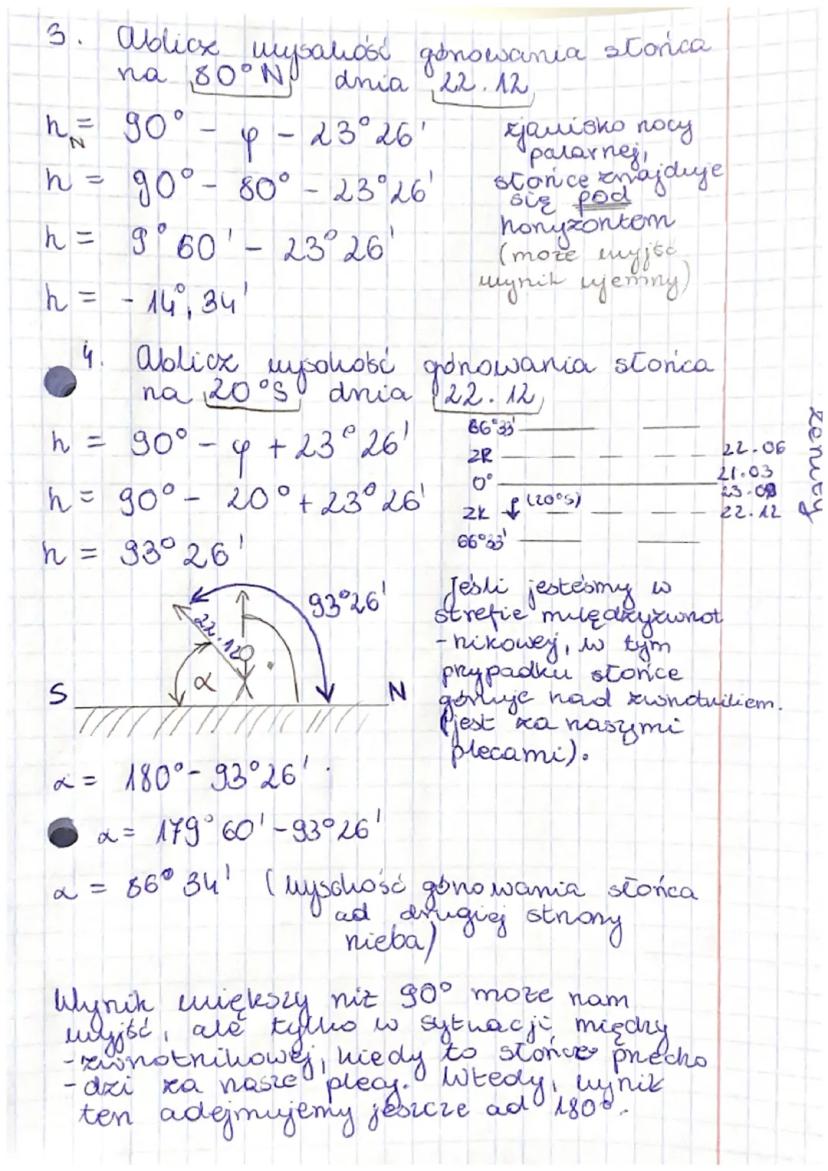 3. Oblicz wysokość górowania słońca
na 80°N dnia 22.12
h_N = 90° - φ - 23°26'
h = 90° - 80° - 23°26'
h = 9°60' - 23°26'
h = -14°,34'
zjawisko nocy
polarnej,
słońce znajduje
się pod
horyzontem
(może wyjść
wynik ujemny)
4. Oblicz wysokość górowania słońca
na 20°S dnia 22.12
h = 90° - φ + 23°26'
h = 90° - 20° + 23°26'
h = 93°26'
66°33'
ZR 22.06
0° 21.03
23.09
ZK (20°S) 22.12
66°33'
zenity
93°26'
22.12
α
S N
Jeśli jesteśmy w
strefie międzyzwrot
-nikowej, w tym
przypadku słońce
góruje nad zwrotnikiem.
(jest za naszymi
plecami).
α = 180° - 93°26'
α = 179°60' - 93°26'
α = 86°34' (wysokość górowania słońca
od drugiej strony
nieba)
Wynik większy niż 90° może nam
wyjść, ale tylko w sytuacji między
-zwrotnikowej, kiedy to słońce przecho
-dzi za nasze plecy. Wtedy, wynik
ten odejmujemy jeszcze od 180°.